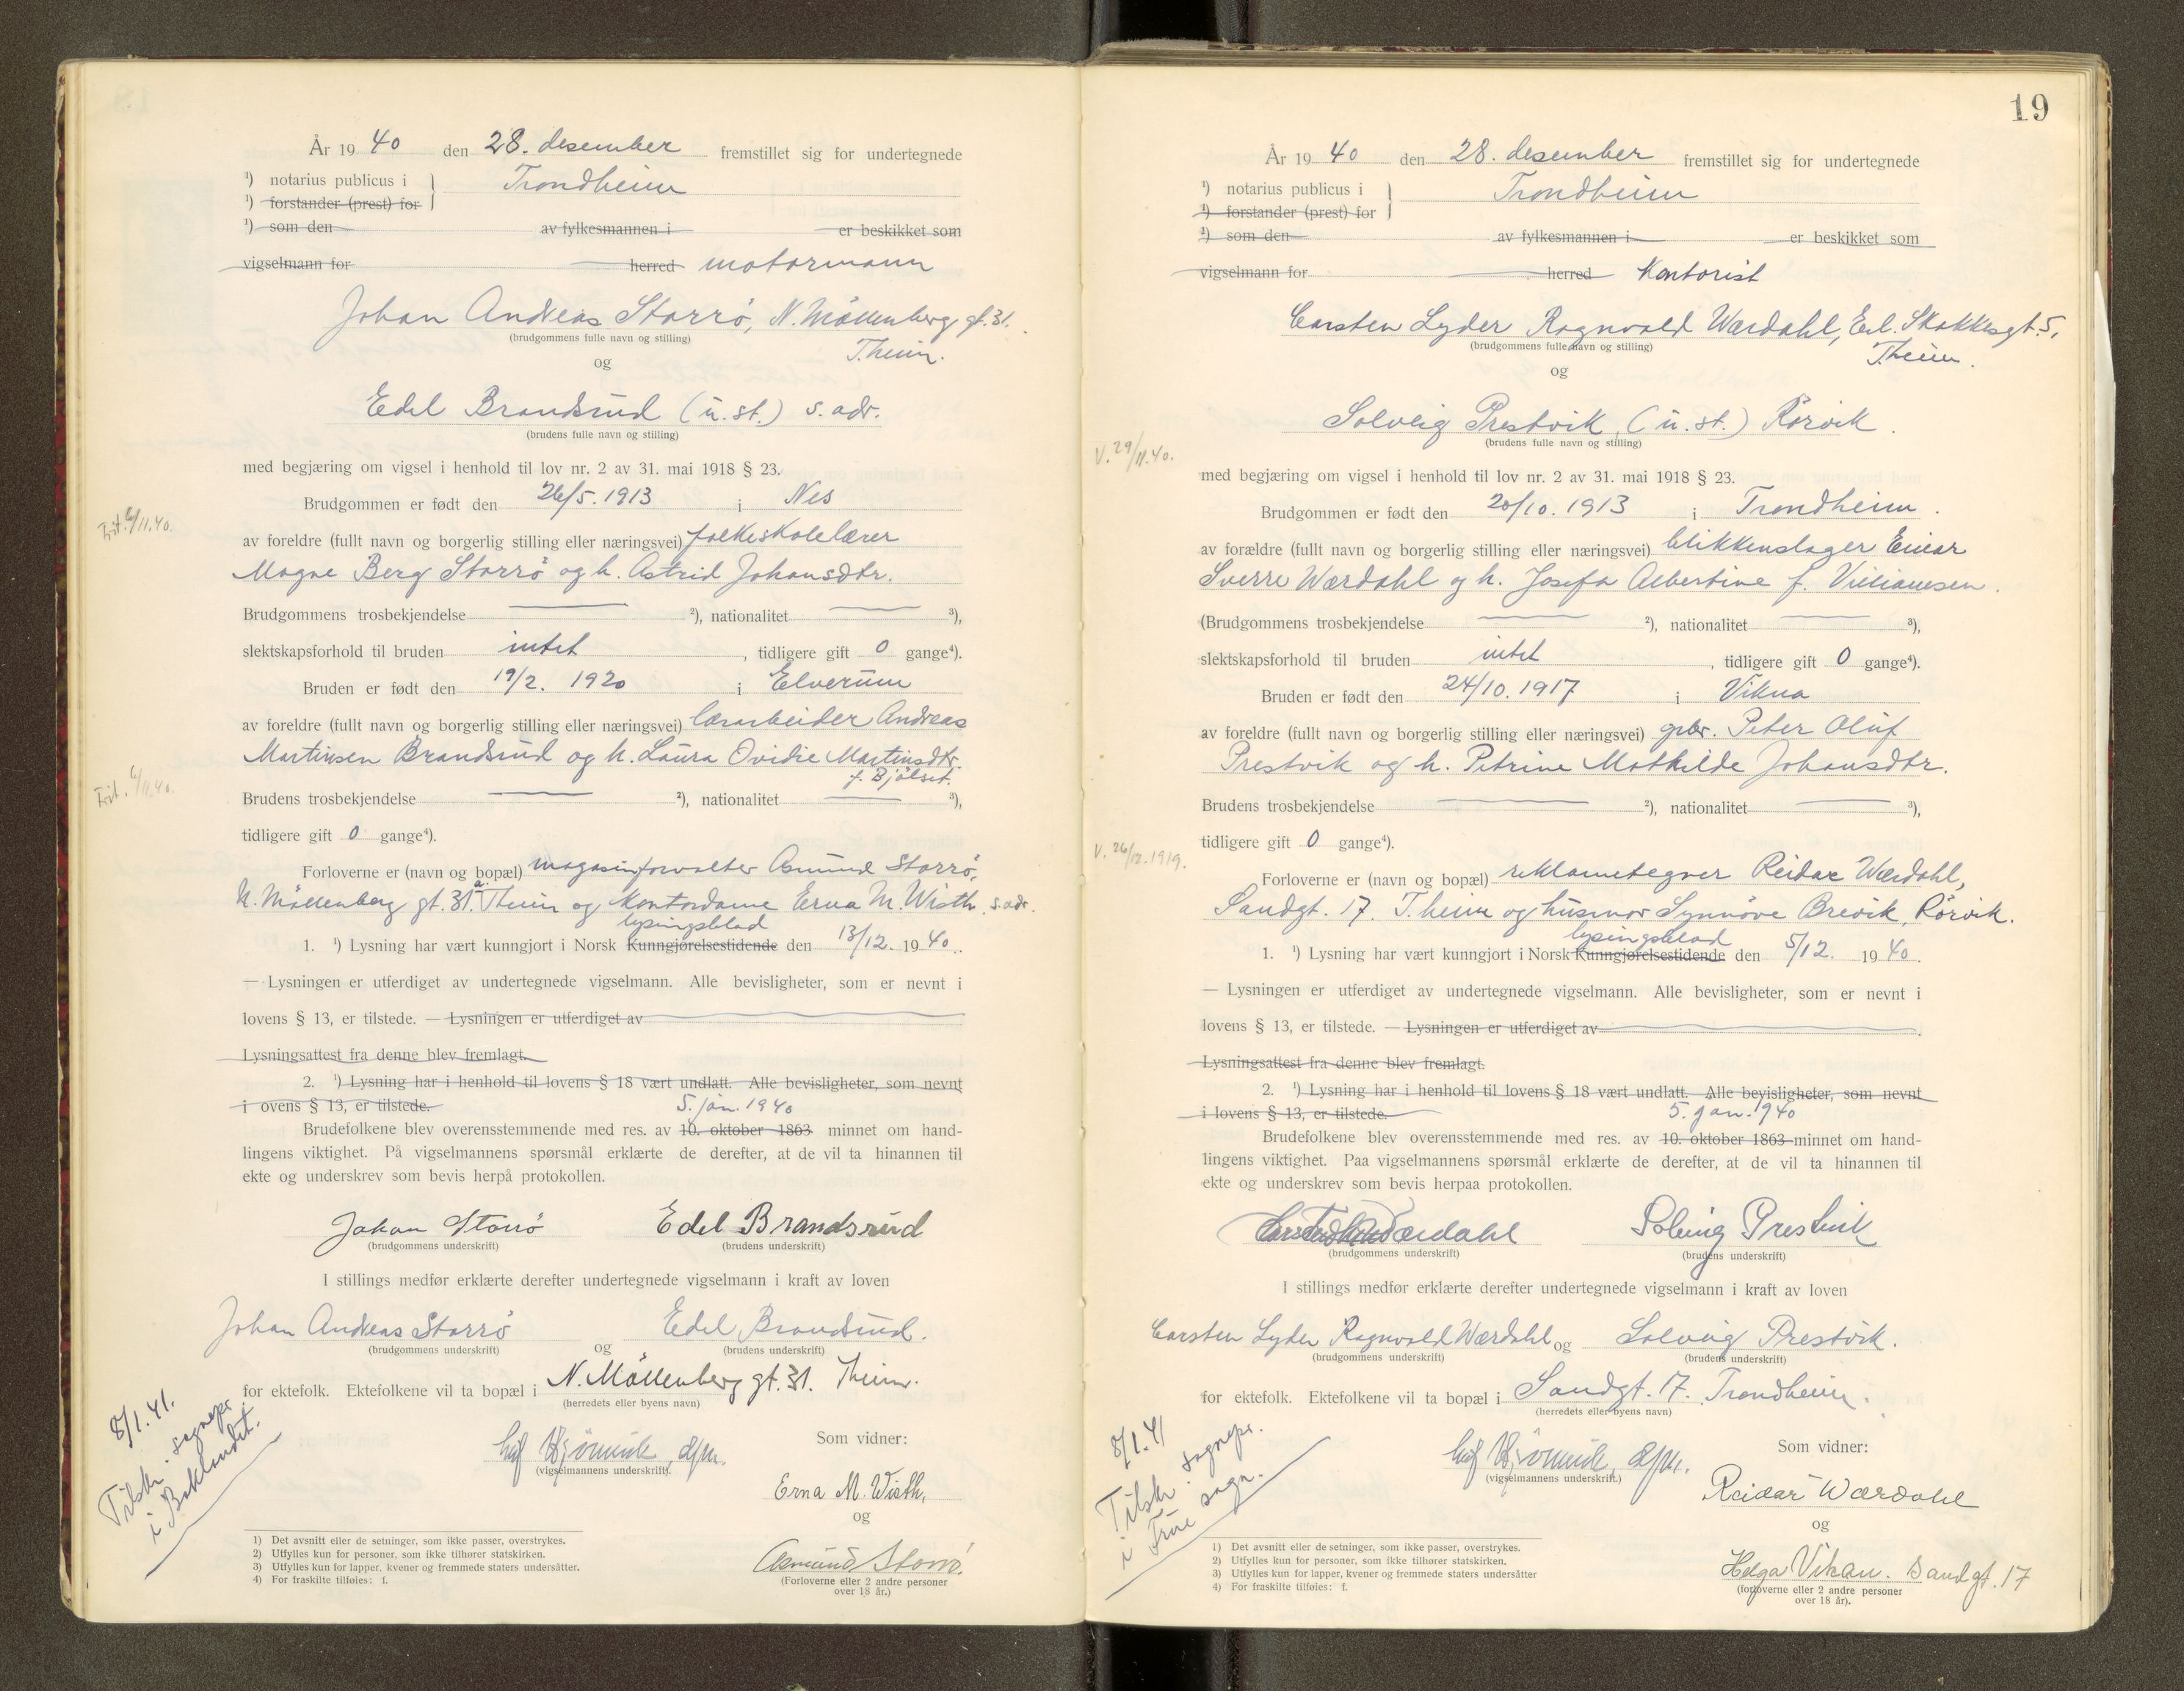 År 19 40 den 28. desember fremstillet sig for undertegnede
¹) notarius publicus i } Trondheim
¹) forstander (prest) for
¹) som den av fylkesmannen i er beskikket som
vigselmann for herred motormann
Johan Andreas Storrø, N. Möllenberg gt. 31.
(brudgommens fulle navn og stilling)
T.heim.
og
Edel Brandsrud (u. st.) s. adr.
(brudens fulle navn og stilling)
med begjæring om vigsel i henhold til lov nr. 2 av 31. mai 1918 § 23.
Brudgommen er født den 26/5. 1913 i Nes
6/11.40.
av foreldre (fullt navn og borgerlig stilling eller næringsvei) folkeskolelærer
Magne Berg Storrø og h. Astrid Johansdtr.
Brudgommens trosbekjendelse ²), nationalitet ³),
slektskapsforhold til bruden intet , tidligere gift 0 gange⁴).
Bruden er født den 19/2. 1920 i Elverum
av foreldre (fullt navn og borgerlig stilling eller næringsvei) lærarbeider Andreas
Martinsen Brandsrud og h. Laura Ovidie Martinsdtr.
f. Bjølset.
6/11.40.
Brudens trosbekjendelse ²), nationalitet ³),
tidligere gift 0 gange⁴).
Forloverne er (navn og bopæl) magasinforvalter Asmund Storrø,
N. Möllenberg gt. 31a. T.heim og kontordame Erna M. Wisth, s. adr.
lysingsblad
1. ¹) Lysning har vært kunngjort i Norsk Kunngjørelsestidende den 13/12. 19 40.
— Lysningen er utferdiget av undertegnede vigselmann. Alle bevisligheter, som er nevnt i
lovens § 13, er tilstede. — Lysningen er utferdiget av
Lysningsattest fra denne blev fremlagt.
2. ¹) Lysning har i henhold til lovens § 18 vært undlatt. Alle bevisligheter, som nevnt
i ovens § 13, er tilstede.
5. jan. 1940
Brudefolkene blev overensstemmende med res. av 10. oktober 1863 minnet om hand-
lingens viktighet. På vigselmannens spørsmål erklærte de derefter, at de vil ta hinannen til
ekte og underskrev som bevis herpå protokollen.
Johan Storrø Edel Brandsrud
(brudgommens underskrift) (brudens underskrift)
I stillings medfør erklærte derefter undertegnede vigselmann i kraft av loven
Johan Andreas Storrø og Edel Brandsrud.
(brudgommens underskrift) (brudens underskrift)
for ektefolk. Ektefolkene vil ta bopæl i N. Möllenberg gt. 31. T.heim.
(herredets eller byens navn)
8/1.41.
Tilskr. sognepr.
i Baklandet.
Som vidner:
(vigselmannens underskrift).
Erna M. Wisth,
og
Asmund Storrø.
(Forloverne eller 2 andre personer
over 18 år.)
1) Det avsnitt eller de setninger, som ikke passer, overstrykes.
2) Utfylles kun for personer, som ikke tilhører statskirken.
3) Utfylles kun for lapper, kvener og fremmede staters undersåtter.
4) For fraskilte tilføies: f.
19
År 19 40 den 28. desember fremstillet sig for undertegnede
¹) notarius publicus i } Trondheim
¹) forstander (prest) for
²) som den av fylkesmannen i er beskikket som
vigselmann for herred Kontorist
Carsten Lyder Ragnvald Wærdahl, Erl. Skakkesgt. 5,
(brudgommens fulle navn og stilling)
T.heim.
og
Solveig Prestvik, (u. st.) Rørvik.
(brudens fulle navn og stilling)
V. 29/11.40.
med begjæring om vigsel i henhold til lov nr. 2 av 31. mai 1918 § 23.
Brudgommen er født den 20/10. 1913 i Trondheim.
av forældre (fullt navn og borgerlig stilling eller næringsvei) blikkenslager Einar
Sverre Wærdahl og h. Josefa Albertine f. Villiamsen.
(Brudgommens trosbekjendelse ²), nationalitet ³),
slektskapsforhold til bruden intet , tidligere gift 0 gange⁴).
Bruden er født den 24/10. 1917 i Vikna
av foreldre (fullt navn og borgerlig stilling eller næringsvei) gbr. Peter Oluf
Prestvik og h. Petrine Mathilde Johansdtr.
Brudens trosbekjendelse ²), nationalitet ³),
tidligere gift 0 gange⁴).
V. 26/12.1919.
Forloverne er (navn og bopæl) reklametegner Reidar Wærdahl,
Sandgt. 17. T.heim og husmor Synnøve Brevik, Rørvik.
lysingsblad
1. ¹) Lysning har vært kunngjort i Norsk Kunngjørelsestidende den 5/12. 19 40.
— Lysningen er utferdiget av undertegnede vigselmann. Alle bevisligheter, som er nevnt i
lovens § 13, er tilstede. — Lysningen er utferdiget av
Lysningsattest fra denne blev fremlagt.
2. ¹) Lysning har i henhold til lovens § 18 vært undlatt. Alle bevisligheter, som nevnt
i lovens § 13, er tilstede.
5. jan. 1940
Brudefolkene blev overensstemmende med res. av 10. oktober 1863 minnet om hand-
lingens viktighet. Paa vigselmannens spørsmål erklærte de derefter, at de vil ta hinannen til
ekte og underskrev som bevis herpaa protokollen.
Wærdahl Solveig Prestvik
(brudgommens underskrift) (brudens underskrift)
I stillings medfør erklærte derefter undertegnede vigselmann i kraft av loven
Carsten Lyder Ragnvald Wærdahl og Solveig Prestvik.
(brudgommens underskrift) (brudens underskrift)
for ektefolk. Ektefolkene vil ta bopæl i Sandgt. 17. Trondheim.
(herredets eller byens navn)
8/1.41
Tilskr. sognepr.
i Frue sogn.
Som vidner:
(vigselmannens underskrift.)
Reidar Wærdahl
og
Helga Vikan. Sandgt. 17
(forloverne eller 2 andre personer
over 18 år).
1) Det avsnitt eller de setninger, som ikke passer, overstrykes.
2) Utfylles kun for personer, som ikke tilhører statskirken.
3) Utfylles kun for lapper, kvener og fremmede staters undersåtter
4) For fraskilte tilføies: f.